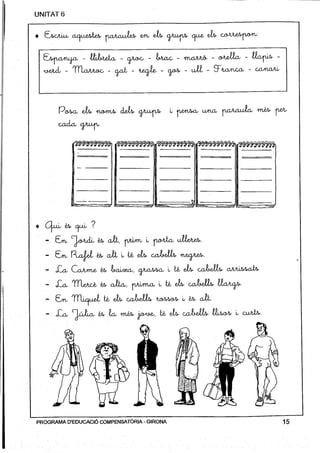 UNITAT 6
• Escriu aquestes paraules en els grups que els correspon.
Espanya - llibreta - groc - brac - marró - orella - llapis -
verd - Marroc - gat - regle - gos - ull - França - canari
Posa els noms dels grups i pensa una paraula més per
cada grup
• Qui és qui ?
- En Jordi és alt, prim i porta ulleres.
- En Rafel és alt i té els cabells negres.
- La Carme és baixa, grassa i té els cabells arrissats
- La Mercè és alta, prima i té els cabells llargs.
- En Miquel té els cabells rossos i és alt.
- La Júlia és la més jove, té els cabells llisos i curts.
PROGRAMA D'EDUCACIÓ COMPENSATÒRIA - GIRONA 15